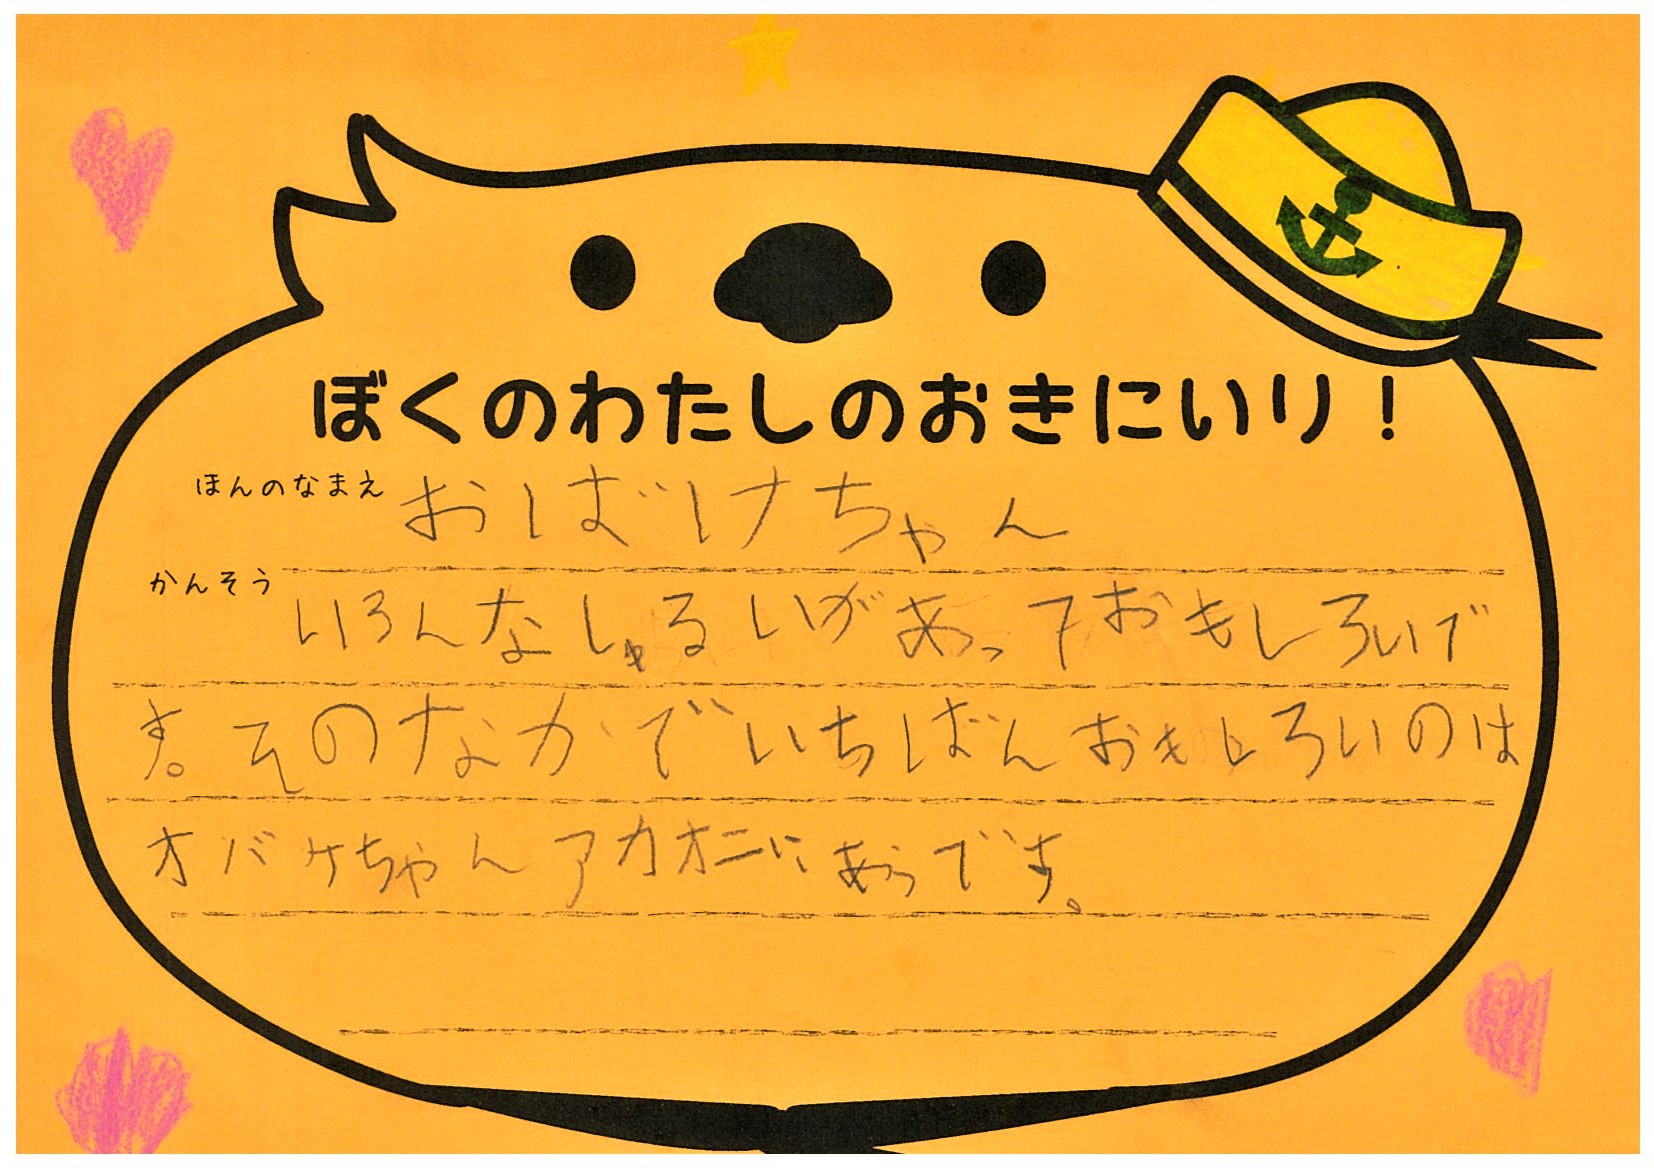 ぼくのわたしのおきにいり！
ほんのなまえ おばけちゃん
かんそう いろんなしゅるいがあっておもしろいで
す。そのなかでいちばんおもしろいのは
オバケちゃんアカオニにあうです。